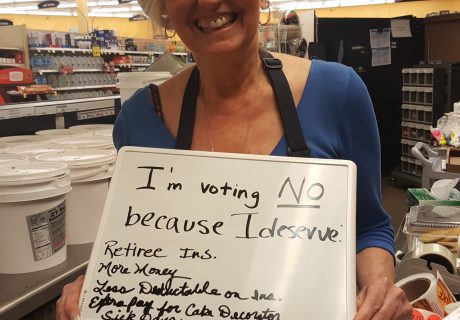 I'm voting NO
because I deserve:
Retiree Ins.
More Money
Less Deductable on Ins.
Extra pay for Cake Decorator
Sick Days